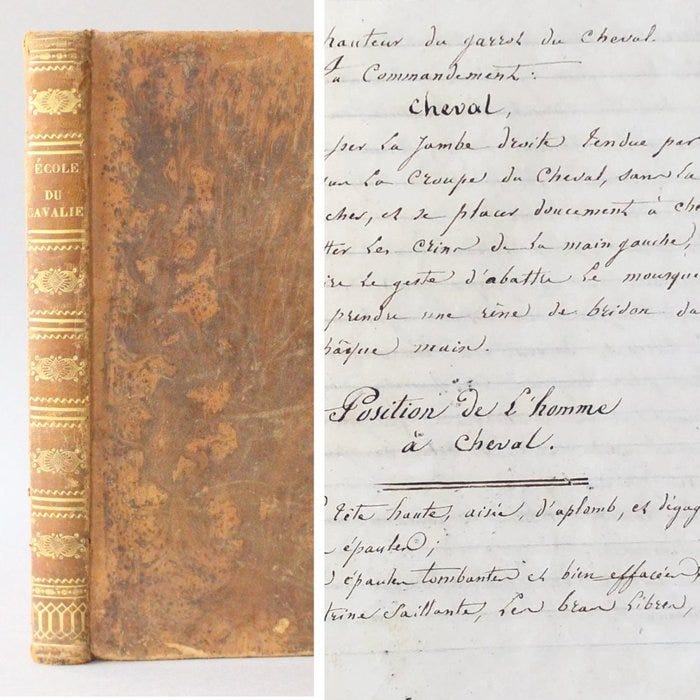 ÉCOLE
DU
CAVALIE
hauteur du garrot du cheval.
Commandement :
cheval,
per la Jambe droite tendue par
la Croupe du Cheval, sans la
cher, et se placer doucement à che
tter les crins de la main gauche,
ire le geste d'abattre le mousque
prendre une rêne de bridon da
haque main.
Position de L'homme
à cheval.
Tête haute, aisée, d'aplomb, et dégag
épaules ;
épaules tombantes et bien effacées,
trine Saillante, Les bras Libres,